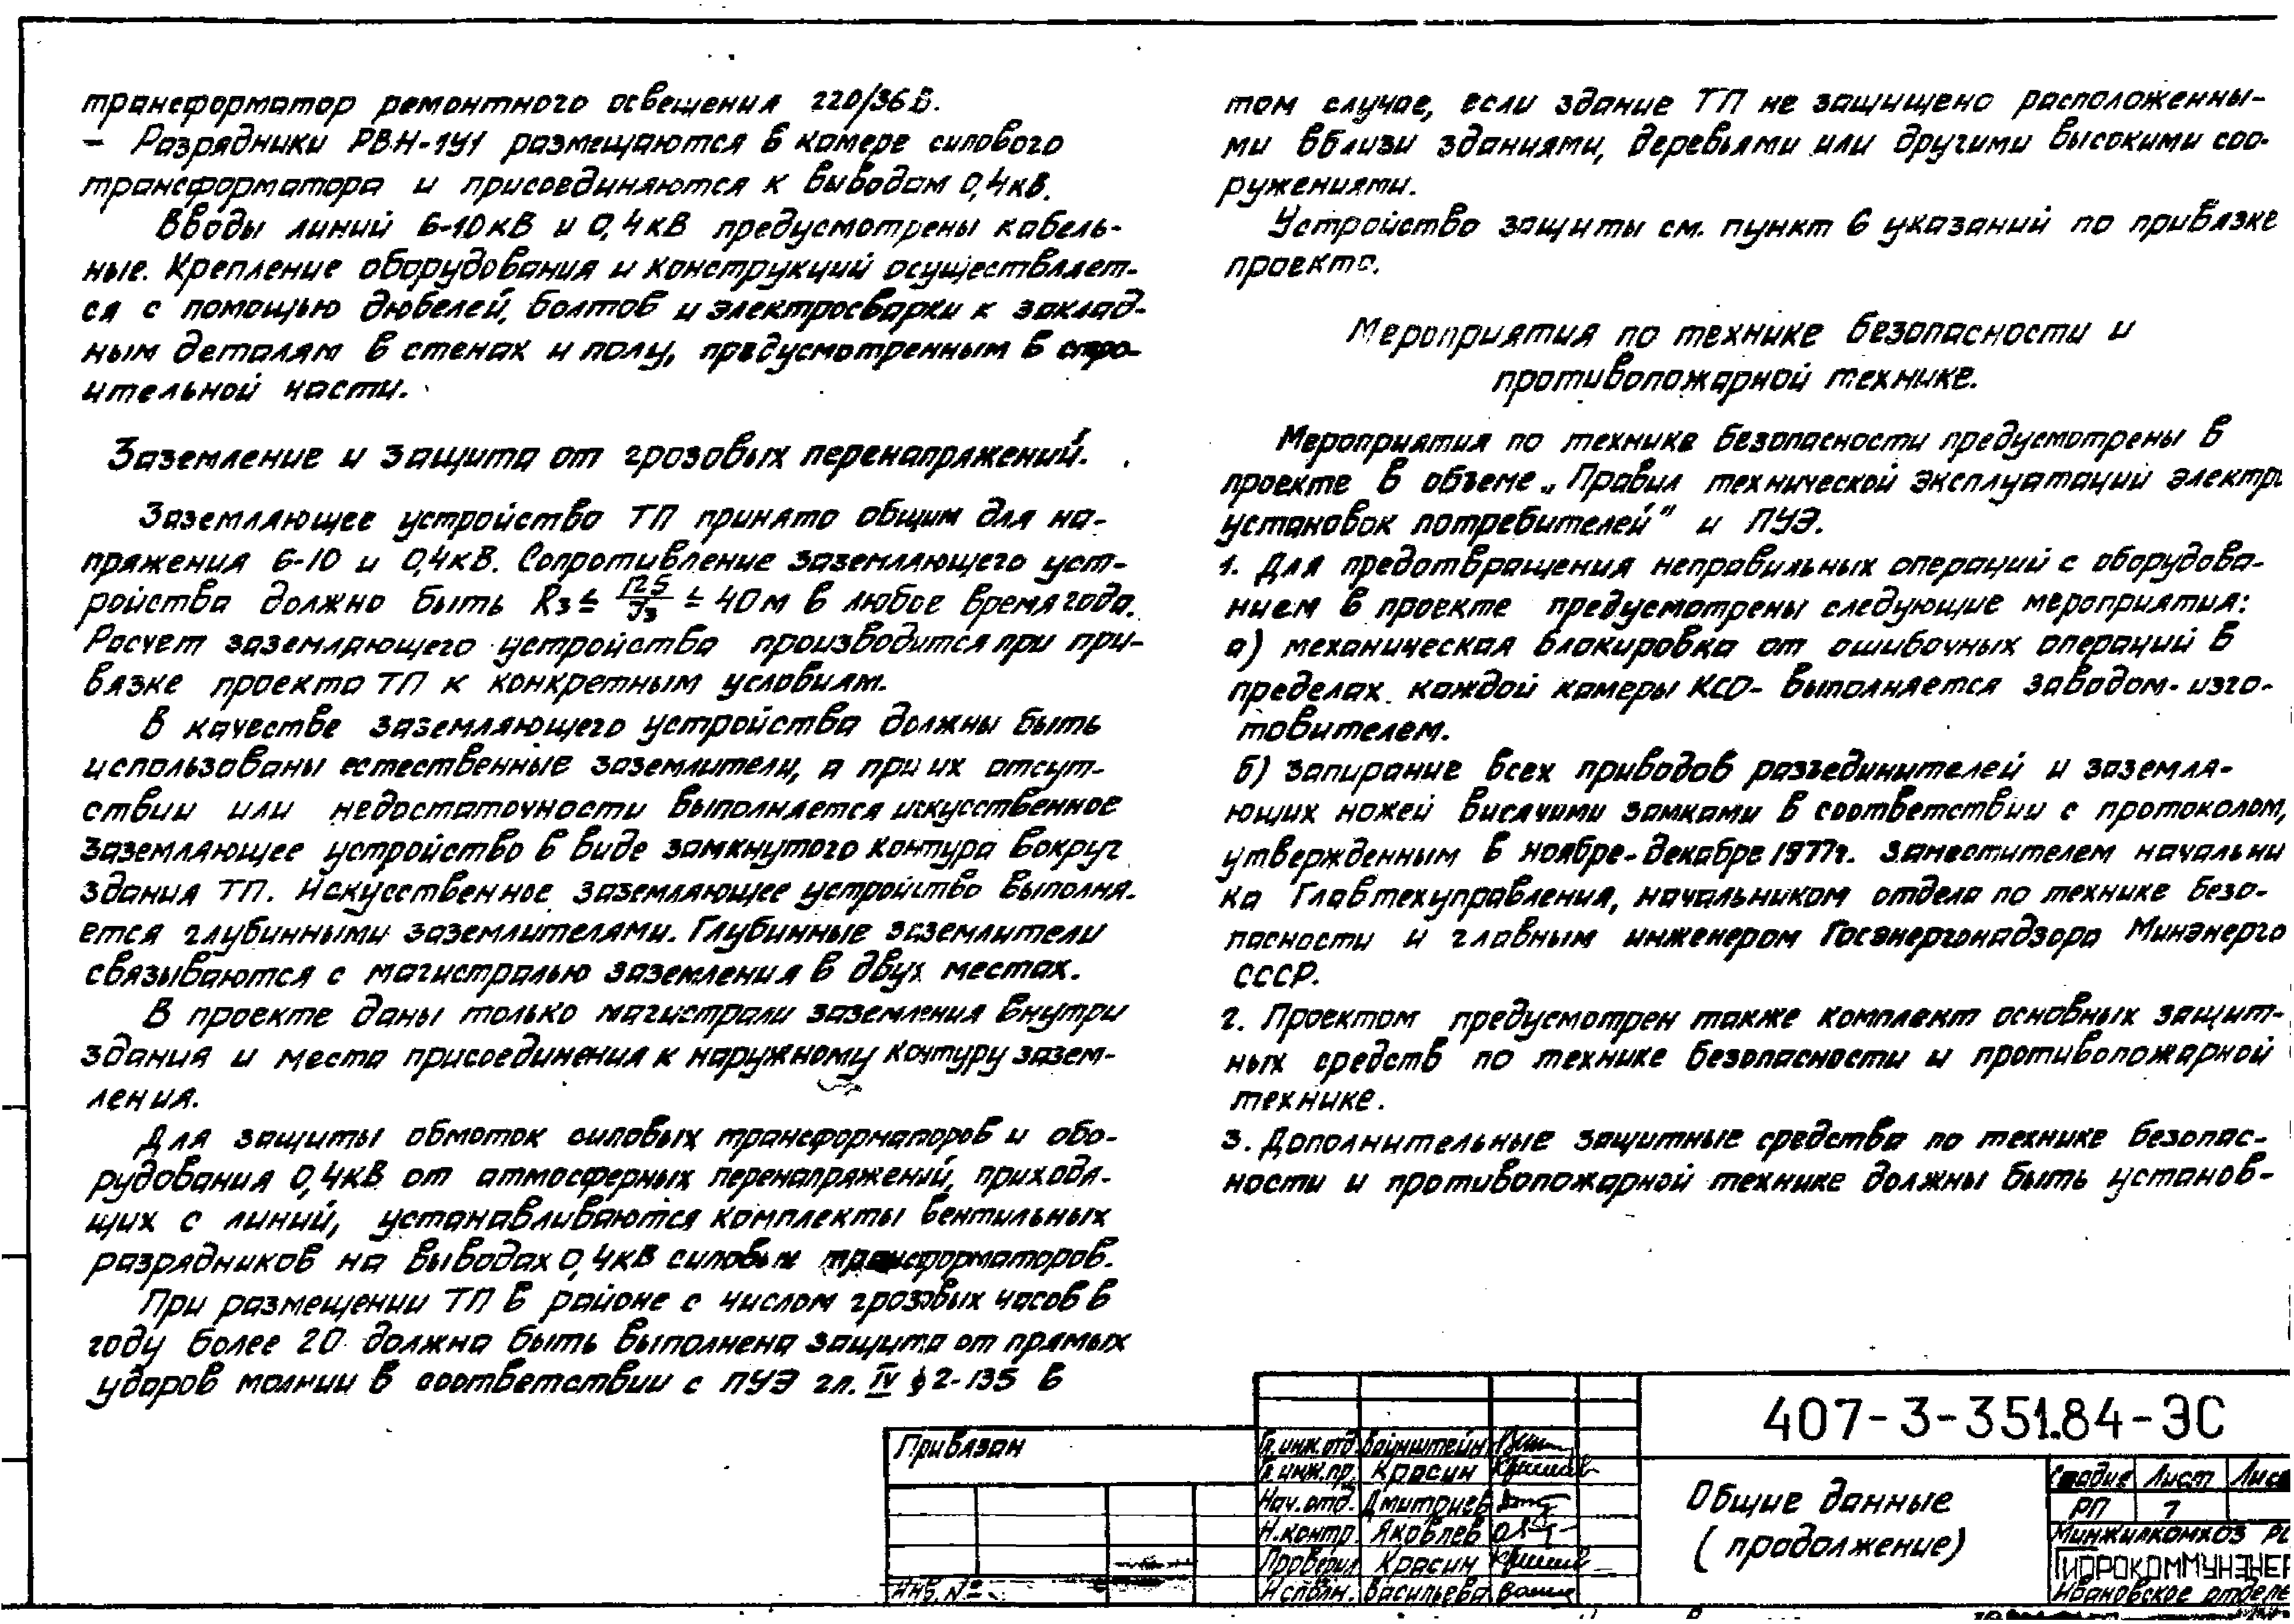 трансформатор ремонтного освещения 220/36В.
- Разрядники РВН-1У1 размещаются в камере силового
трансформатора и присоединяются к выводам 0,4кВ.
Вводы линий 6-10кВ и 0,4кВ предусмотрены кабель-
ные. Крепление оборудования и конструкций осуществляет-
ся с помощью дюбелей, болтов и электросварки к заклад-
ным деталям в стенах и полу, предусмотренным в стро-
ительной части.
Заземление и защита от грозовых перенапряжений.
Заземляющее устройство ТП принято общим для на-
пряжения 6-10 и 0,4кВ. Сопротивление заземляющего уст-
ройства должно быть Rз ≤ 125/Jз ≤ 40м в любое время года.
Расчет заземляющего устройства производится при при-
вязке проекта ТП к конкретным условиям.
В качестве заземляющего устройства должны быть
использованы естественные заземлители, а при их отсут-
ствии или недостаточности выполняется искусственное
заземляющее устройство в виде замкнутого контура вокруг
здания ТП. Искусственное заземляющее устройство выполня-
ется глубинными заземлителями. Глубинные заземлители
связываются с магистралью заземления в двух местах.
В проекте даны только магистрали заземления внутри
здания и места присоединения к наружному контуру зазем-
ления.
Для защиты обмоток силовых трансформаторов и обо-
рудования 0,4кВ от атмосферных перенапряжений, приходя-
щих с линий, устанавливаются комплекты вентильных
разрядников на выводах 0,4кВ силовых трансформаторов.
При размещении ТП в районе с числом грозовых часов в
году более 20 должна быть выполнена защита от прямых
ударов молнии в соответствии с ПУЭ гл. IV §2-135 в
том случае, если здание ТП не защищено расположенны-
ми вблизи зданиями, деревьями или другими высокими соо-
ружениями.
Устройство защиты см. пункт 6 указаний по привязке
проекта.
Мероприятия по технике безопасности и
противопожарной технике.
Мероприятия по технике безопасности предусмотрены в
проекте в объеме „Правил технической эксплуатаций электр
установок потребителей" и ПУЭ.
1. Для предотвращения неправильных операций с оборудова-
нием в проекте предусмотрены следующие мероприятия:
а) механическая блокировка от ошибочных операций в
пределах каждой камеры КСО- выполняется заводом-изго-
товителем.
б) запирание всех приводов разъединителей и заземля-
ющих ножей висячими замками в соответствии с протоколом,
утвержденным в ноябре-декабре 1977г. заместителем начальни
ка Главтехуправления, начальником отдела по технике безо-
пасности и главным инженером Госэнергонадзора Минэнерго
СССР.
2. Проектом предусмотрен также комплект основных защит-
ных средств по технике безопасности и противопожарной
технике.
3. Дополнительные защитные средства по технике безопас-
ности и противопожарной технике должны быть установ-
Привязан
Инв. №
Гл.инж.отд. Вайнштейн
Гл.инж.пр. Красин
Нач.отд. Дмитриев
Н.контр. Яковлев
Проверил Красин
Исполн. Васильева
407-3-351.84-ЭС
Общие данные
(продолжение)
Стадия Лист Лис
РП 7
Минжилкомхоз РС
ГИПРОКОММУНЭНЕР
Ивановское отделе